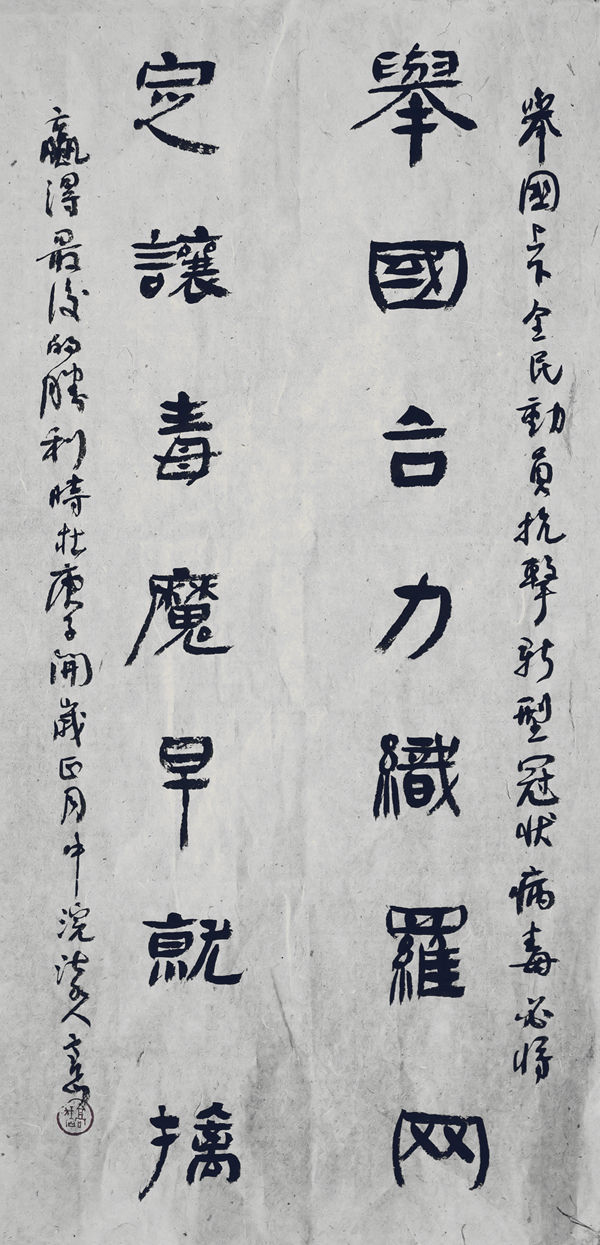 舉國上下全民動員抗擊新型冠狀病毒必將
舉國合力織羅网
定讓毒魔早就擒
贏得最後的勝利時在庚子開歲正月中浣